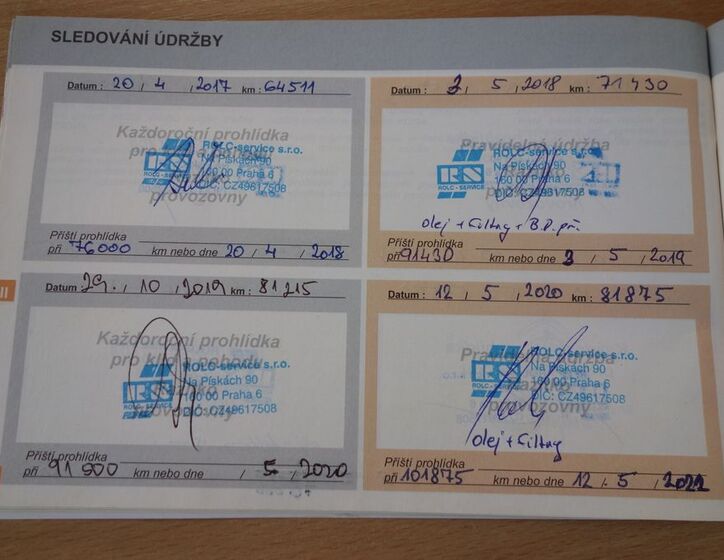 SLEDOVÁNÍ ÚDRŽBY
Datum : 20 / 4 / 2017 km : 64511
Každoroční prohlídka
pro klid a pohodu
provozovny
ROLC-service s.r.o.
Na Pískách 90
160 00 Praha 6
DIČ: CZ49617508
ROLC - SERVICE
Příští prohlídka
při 76000 km nebo dne 20 / 4 / 2018
Datum : 2 / 5 / 2018 km : 71430
Pravidelná údržba
provozovny
ROLC-service s.r.o.
Na Pískách 90
160 00 Praha 6
DIČ: CZ49617508
ROLC - SERVICE
olej + filtry + B.P. př.
Příští prohlídka
při 91430 km nebo dne 2 / 5 / 2019
II
Datum : 29. / 10 / 2019 km : 81215
Každoroční prohlídka
pro klid a pohodu
provozovny
ROLC-service s.r.o.
Na Pískách 90
160 00 Praha 6
DIČ: CZ49617508
ROLC - SERVICE
Příští prohlídka
při 91 900 km nebo dne / 5 / 2020
Datum : 12 / 5 / 2020 km : 81875
Pravidelná údržba
Razítko
provozovny
ROLC-service s.r.o.
Na Pískách 90
160 00 Praha 6
DIČ: CZ49617508
ROLC - SERVICE
olej + filtry
Příští prohlídka
při 101875 km nebo dne 12 / 5 / 2022